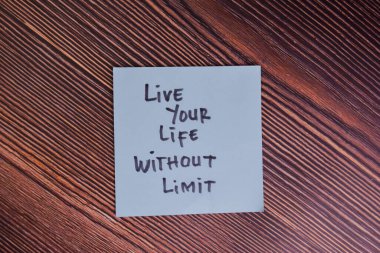 LIVE
YOUR
LIFE
WITHOUT
LIMIT